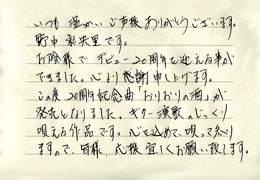 いつも 温かいご声援ありがとうございます。
野中 彩央里です。
お陰様で デビュー20周年を迎える事が
できました。心より感謝申し上げます。
この度 20周年記念曲「おりおりの酒」が
発売となりました。ギター演歌のじっくり
唄える作品です。心を込めて、唄って参り
ますので、皆様、応援宜しくお願い致します。